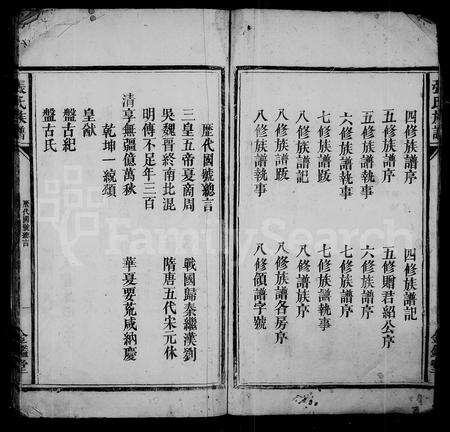 張氏族譜
四修族譜序 四修族譜記
五修族譜序 五修贈君紹公序
五修族譜執事 六修族譜序
六修族譜執事 七修族譜序
七修族譜跋 七修族譜執事
八修族譜跋 八修族譜序
八修族譜記 八修族譜各房序
八修族譜執事 八修領譜字號
歷代國號總言
三皇五帝夏商周 戰國歸秦繼漢劉
吳魏晉終南北混 隋唐五代宋元休
明傳不足年三百
清享無疆億萬秋 華夏要荒咸納慶
乾坤一統頌
皇猷
盤古紀
盤古氏
張氏族譜
歷代國號總言
金鑑堂
金鑑堂
FamilySearch